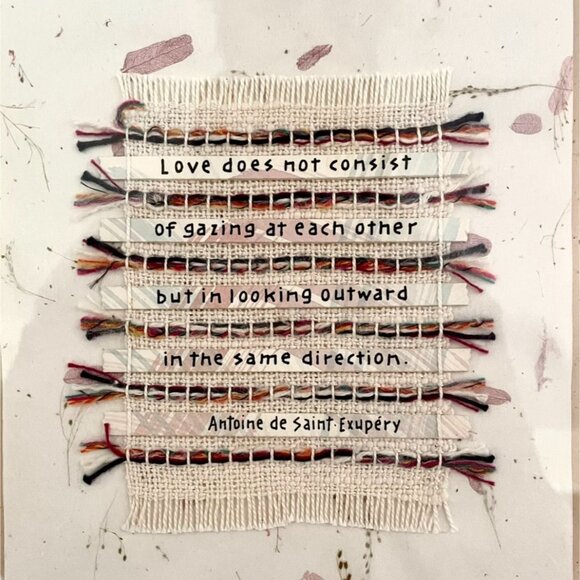 Love does not consist
of gazing at each other
but in looking outward
in the same direction.
Antoine de Saint-Exupéry